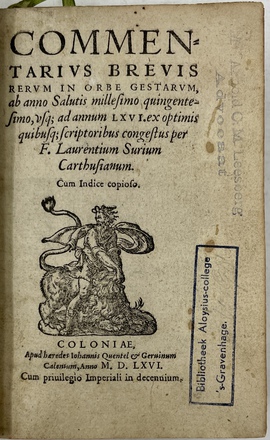 COMMEN-
TARIVS BREVIS
RERVM IN ORBE GESTARVM,
ab anno Salutis millesimo quingente-
simo, vsq; ad annum LXVI. ex optimis
quibusq; scriptoribus congestus per
F. Laurentium Surium
Carthusianum.
Cum Indice copioso.
COLONIAE,
Apud hæredes Iohannis Quentel & Geruinum
Calenium, Anno M. D. LXVI.
Cum priuilegio Imperiali in decennium.
Bibliotheek Aloysius-college
's-Gravenhage.